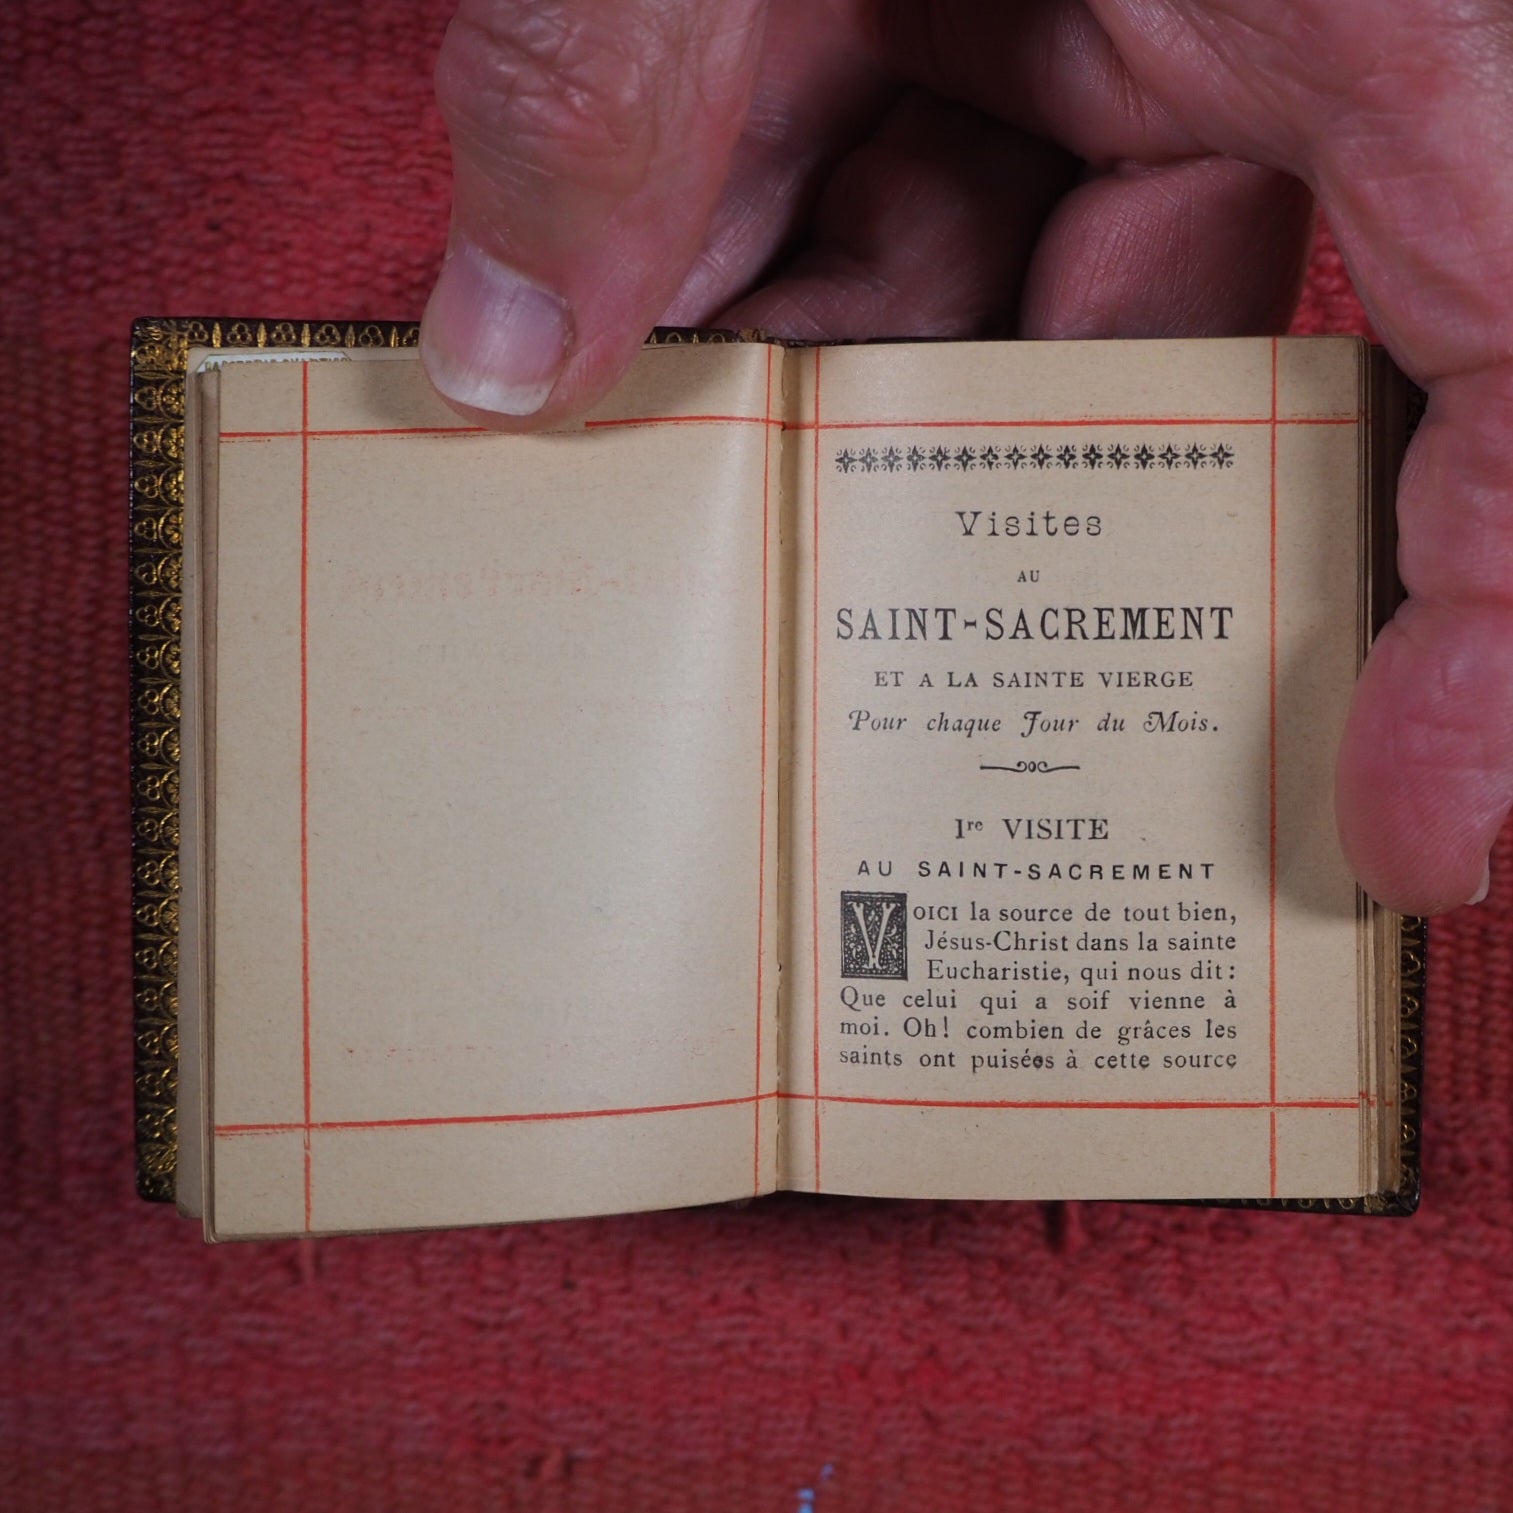 Visites
AU
SAINT-SACREMENT
ET A LA SAINTE VIERGE
Pour chaque Jour du Mois.
Ire VISITE
AU SAINT-SACREMENT
VOICI la source de tout bien,
Jésus-Christ dans la sainte
Eucharistie, qui nous dit :
Que celui qui a soif vienne à
moi. Oh! combien de grâces les
saints ont puisées à cette source